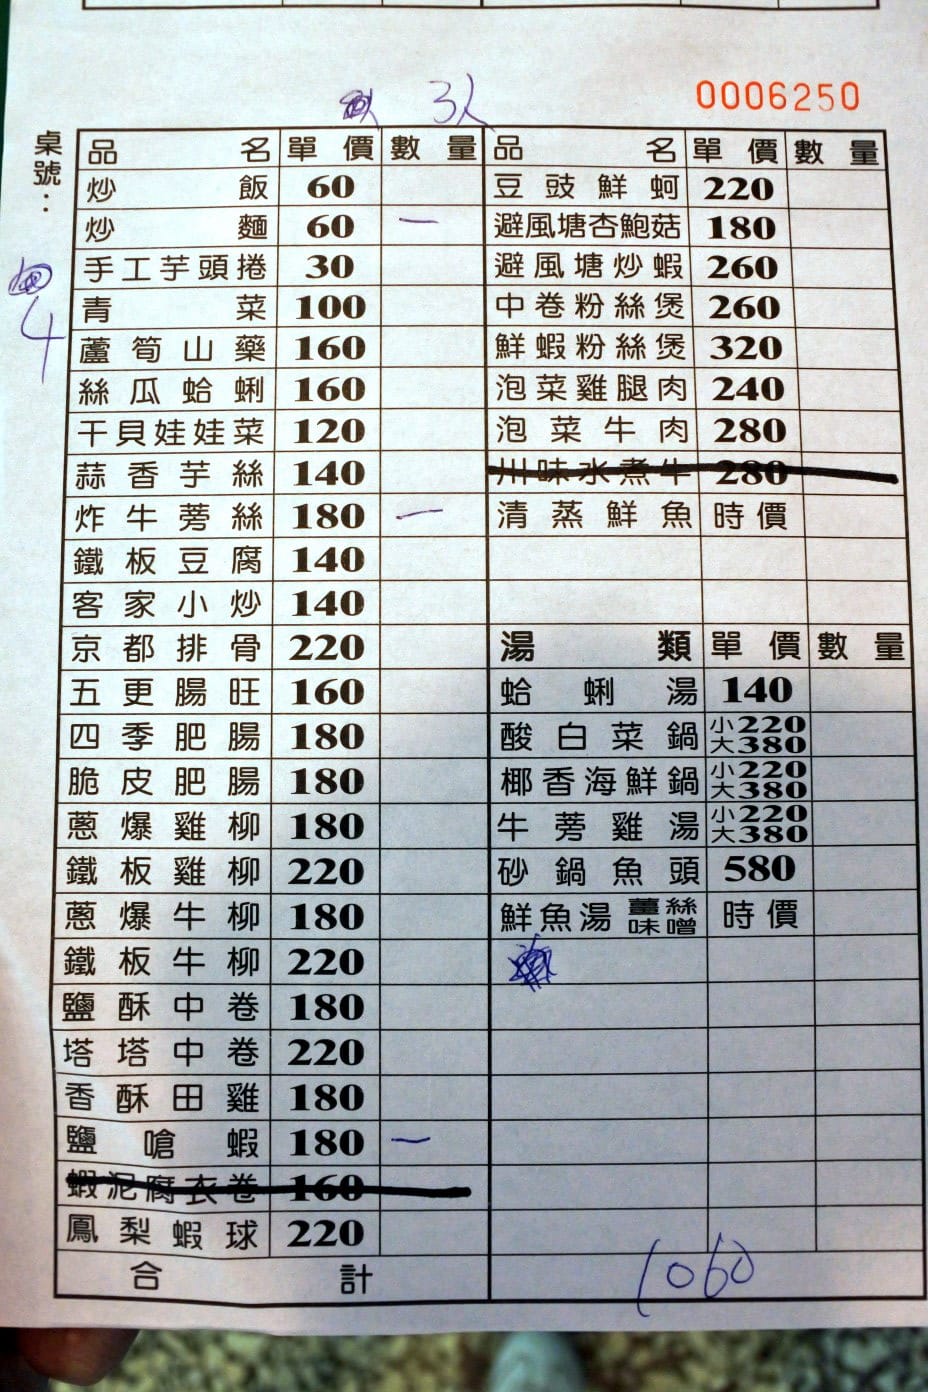 3人 0006250
桌號：
4
品名 單價 數量 品名 單價 數量
炒飯 60 豆豉鮮蚵 220
炒麵 60 一 避風塘杏鮑菇 180
手工芋頭捲 30 避風塘炒蝦 260
青菜 100 中卷粉絲煲 260
蘆筍山藥 160 鮮蝦粉絲煲 320
絲瓜蛤蜊 160 泡菜雞腿肉 240
干貝娃娃菜 120 泡菜牛肉 280
蒜香芋絲 140 川味水煮牛 280
炸牛蒡絲 180 一 清蒸鮮魚 時價
鐵板豆腐 140
客家小炒 140
京都排骨 220 湯類 單價 數量
五更腸旺 160 蛤蜊湯 140
四季肥腸 180 酸白菜鍋 小220 大380
脆皮肥腸 180 椰香海鮮鍋 小220 大380
蔥爆雞柳 180 牛蒡雞湯 小220 大380
鐵板雞柳 220 砂鍋魚頭 580
蔥爆牛柳 180 鮮魚湯 薑絲 味噌 時價
鐵板牛柳 220
鹽酥中卷 180
塔塔中卷 220
香酥田雞 180
鹽嗆蝦 180 一
蝦泥腐衣卷 160
鳳梨蝦球 220
合計 1060